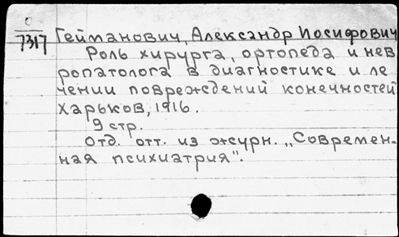 С
7317
Гейманович, Александр Иосифович
Роль хирурга, ортопеда и нев
ропатолога в диагностике и ле
чении повреждений конечностей
Харьков, 1916.
9 стр.
Отд. отт. из журн. „Современ-
ная психиатрия".